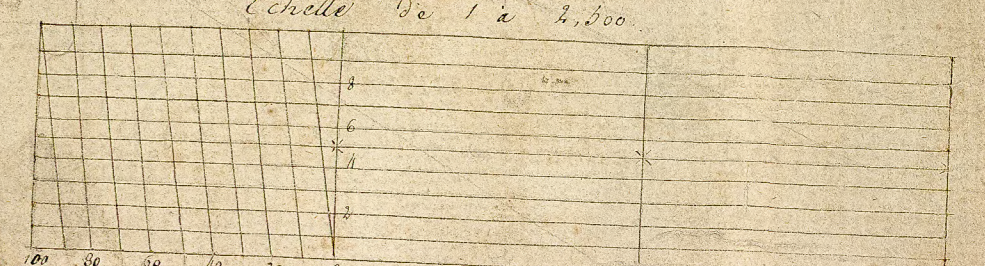 Echelle de 1 à 2,500.
8
6
4
2
100 80 60 40 20 0